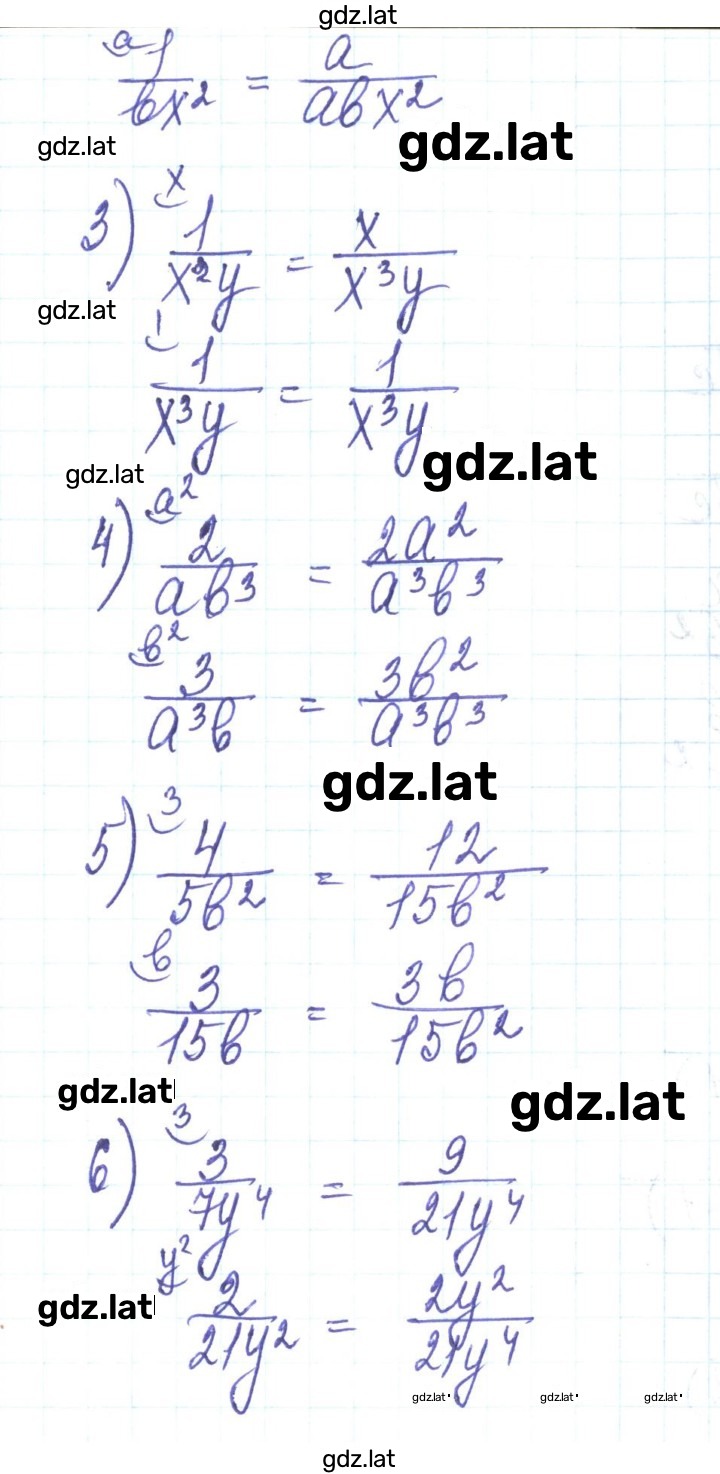 gdz.lat
a
1/bx² = a/abx²
gdz.lat
gdz.lat
x
3) 1/x²y = x/x³y
gdz.lat
1
1/x³y = 1/x³y
gdz.lat
gdz.lat
a²
4) 2/ab³ = 2a²/a³b³
b²
3/a³b = 3b²/a³b³
gdz.lat
3
5) 4/5b² = 12/15b²
b
3/15b = 3b/15b²
gdz.lat
gdz.lat
3
6) 3/7y⁴ = 9/21y⁴
y²
gdz.lat
2/21y² = 2y²/21y⁴
gdz.lat gdz.lat gdz.lat
gdz.lat